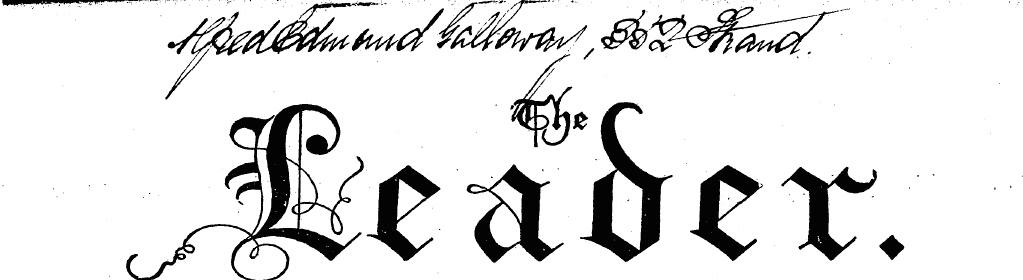 Alfred Edmund Galloway, 352 Strand.
The
Leader.